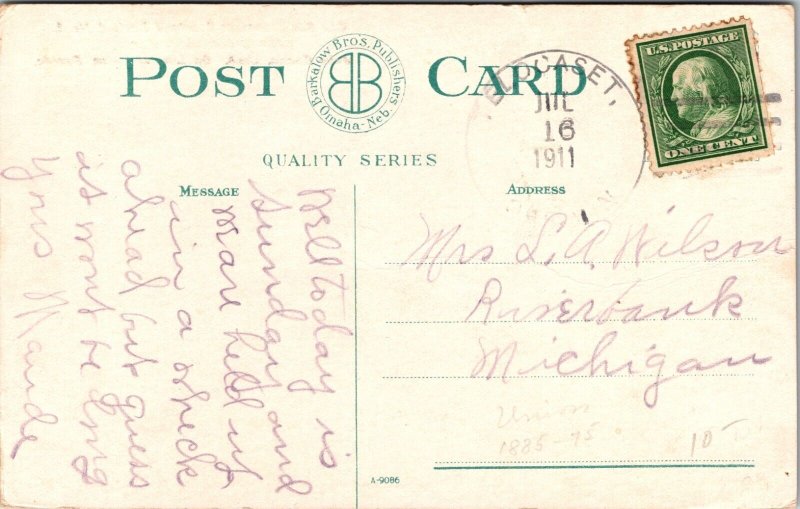 POST CARD
Barkalow Bros. Publishers
Omaha-Neb.
QUALITY SERIES
MESSAGE
Well today is
Sunday and
we are held up
in a wreck
ahead but guess
it wont be long
Yours Maude
ADDRESS
TELOCASET,
JUL
16
1911
U.S. POSTAGE
ONE CENT
Mrs L. A. Wilson
Riverbank
Michigan
Union
1885-75
10
A-9086